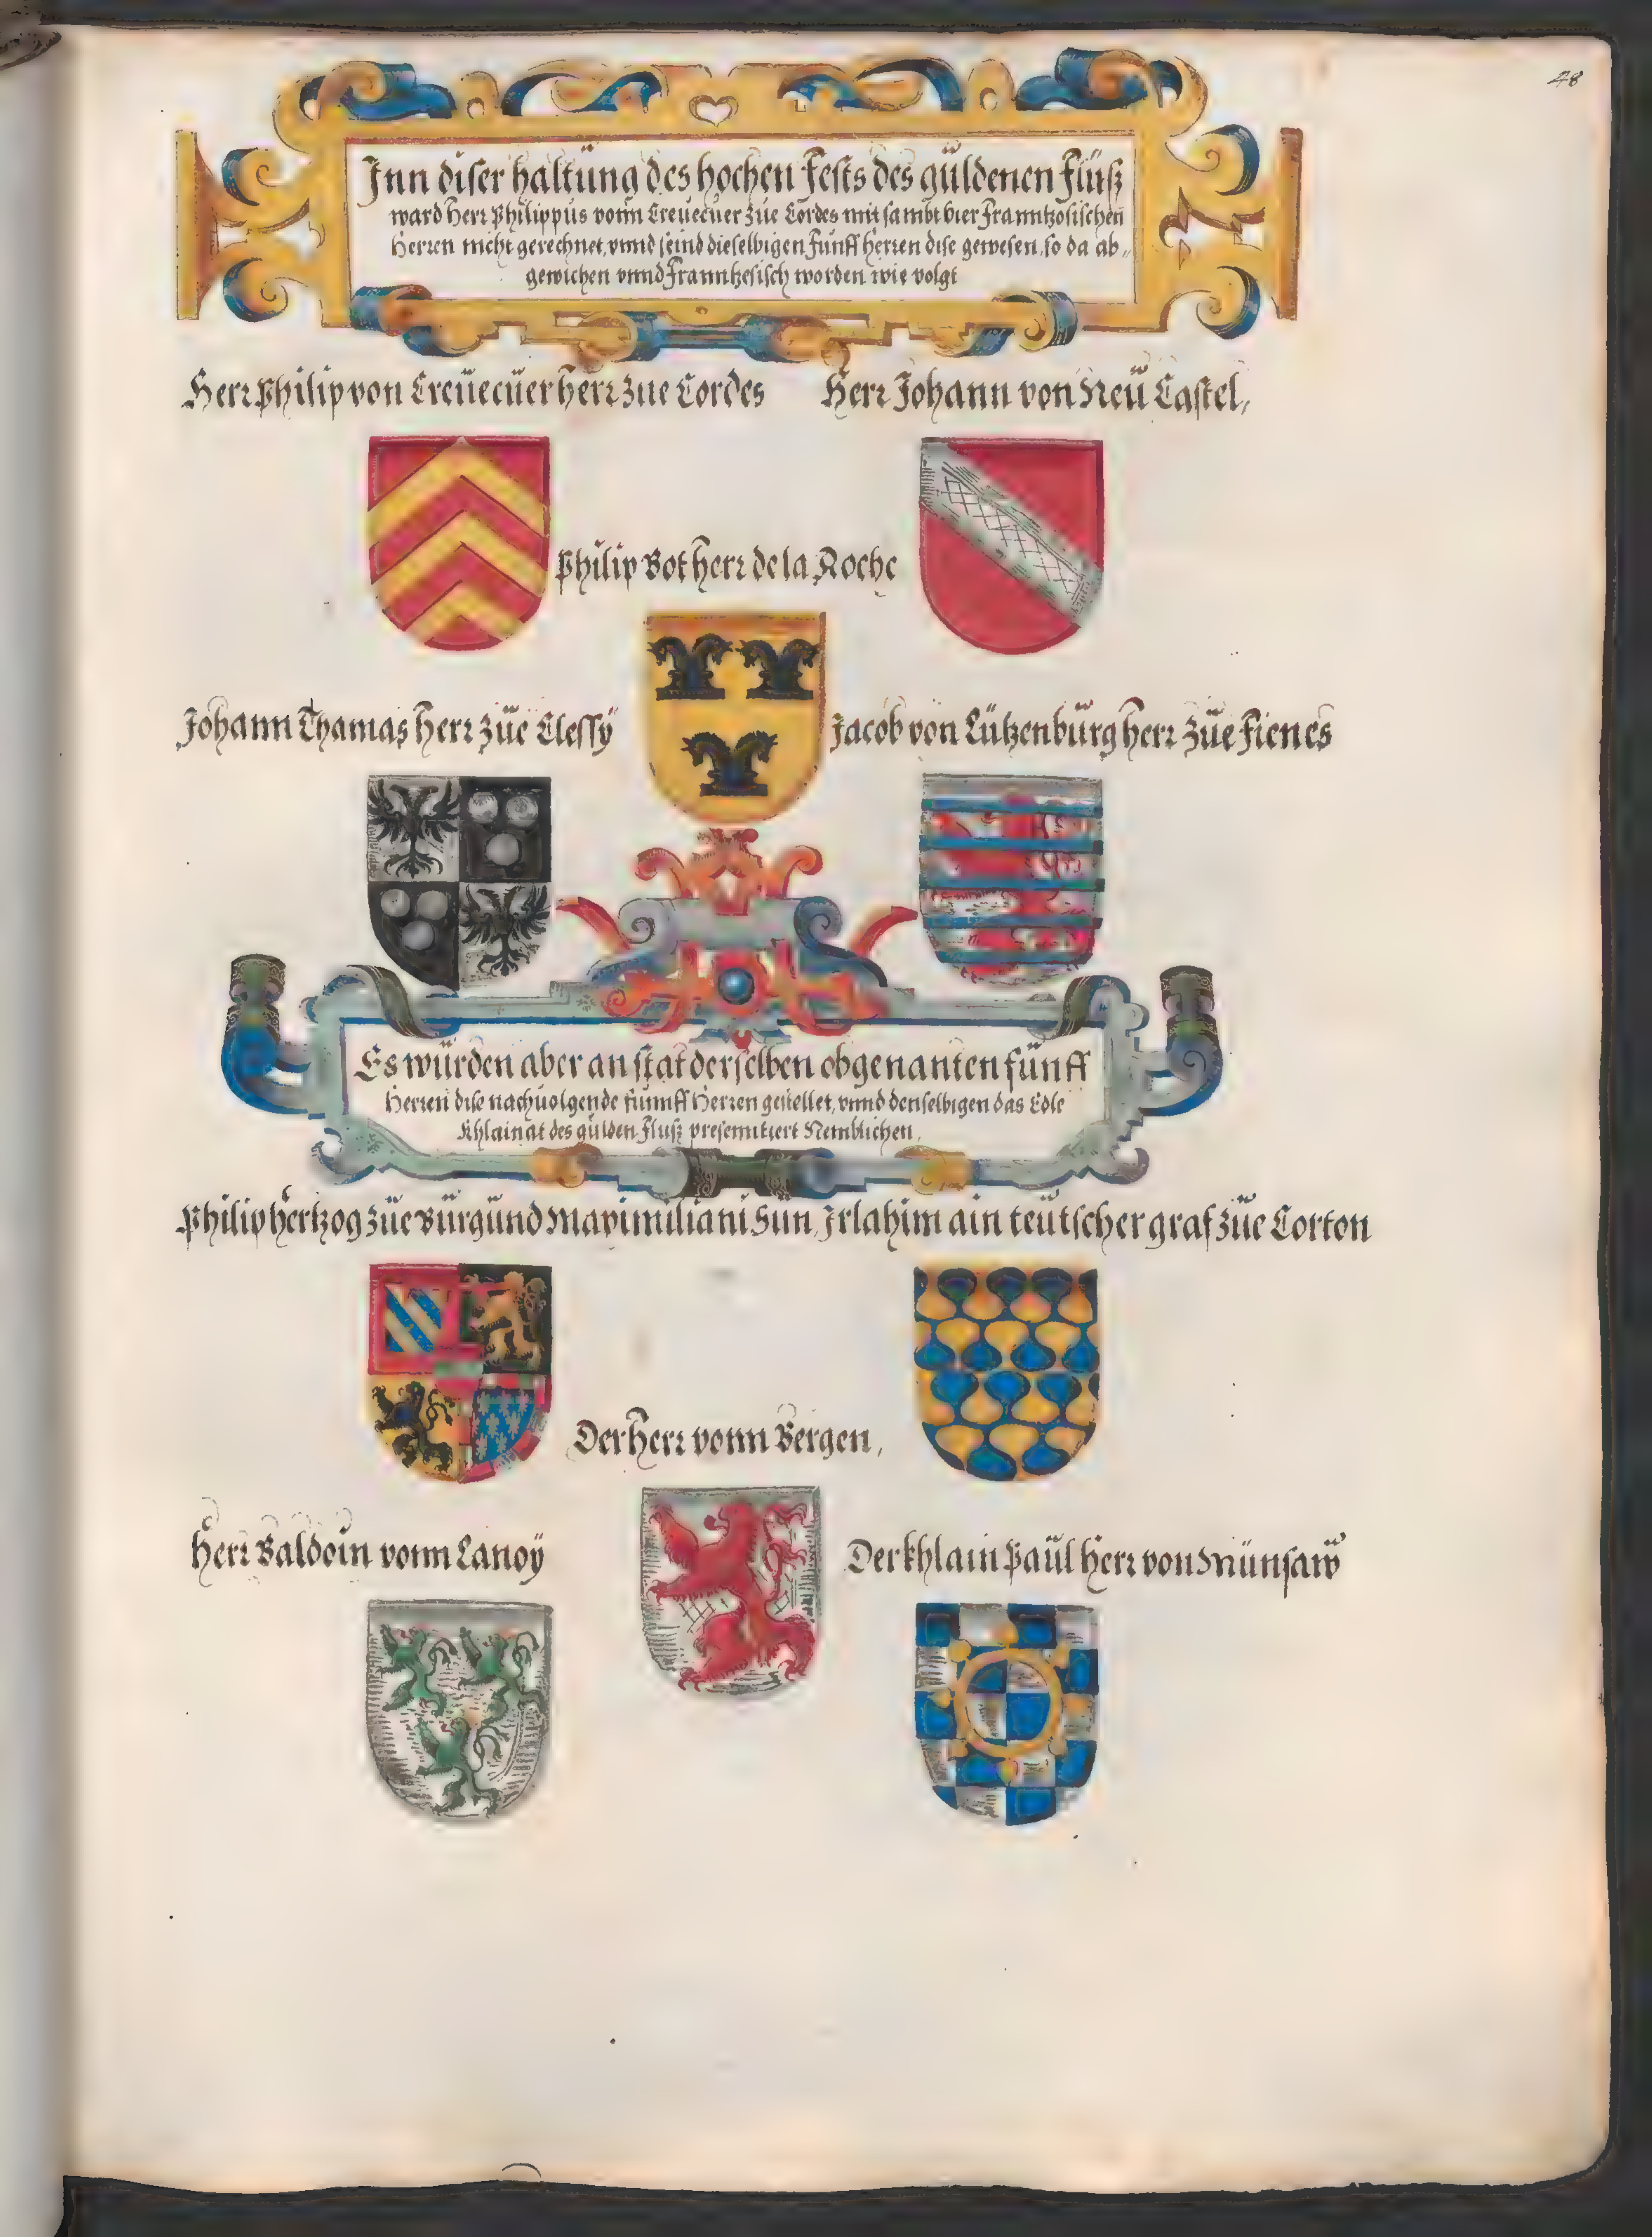 48
Inn diser haltung des hochen Fests des guldenen Fluß
ward Herr Philippus vonn Creuecuer zue Cordes mit sambt vier Franntzosischen
Herren nicht gerechnet, vnnd seind dieselbigen Funff herren dise gewesen, so da ab„
gewichen vnnd Franntzesisch worden wie volgt
Herr Philip von Creuecuer herr zue Cordes
Herr Johann von Neu Castel,
Philip Bot herr de la Roche
Johann Thamas Herr zue Clessÿ
Jacob von Lützenburg herr zue Fienes
Es wurden aber an stat derselben obgenanten funff
Herren dise nachuolgende funnff Herren gestellet, vnnd denselbigen das Edle
Khlainat des gulden Fluß presenntiert Nemblichen,
Philip hertzog zue Burgund Maximiliani Sun,
Irlahim ain teutscher graf zue Corton
Der Herr vonn Bergen,
Herr Baldoin vonn Lanoÿ
Der khlain Paul Herr von Munsaw